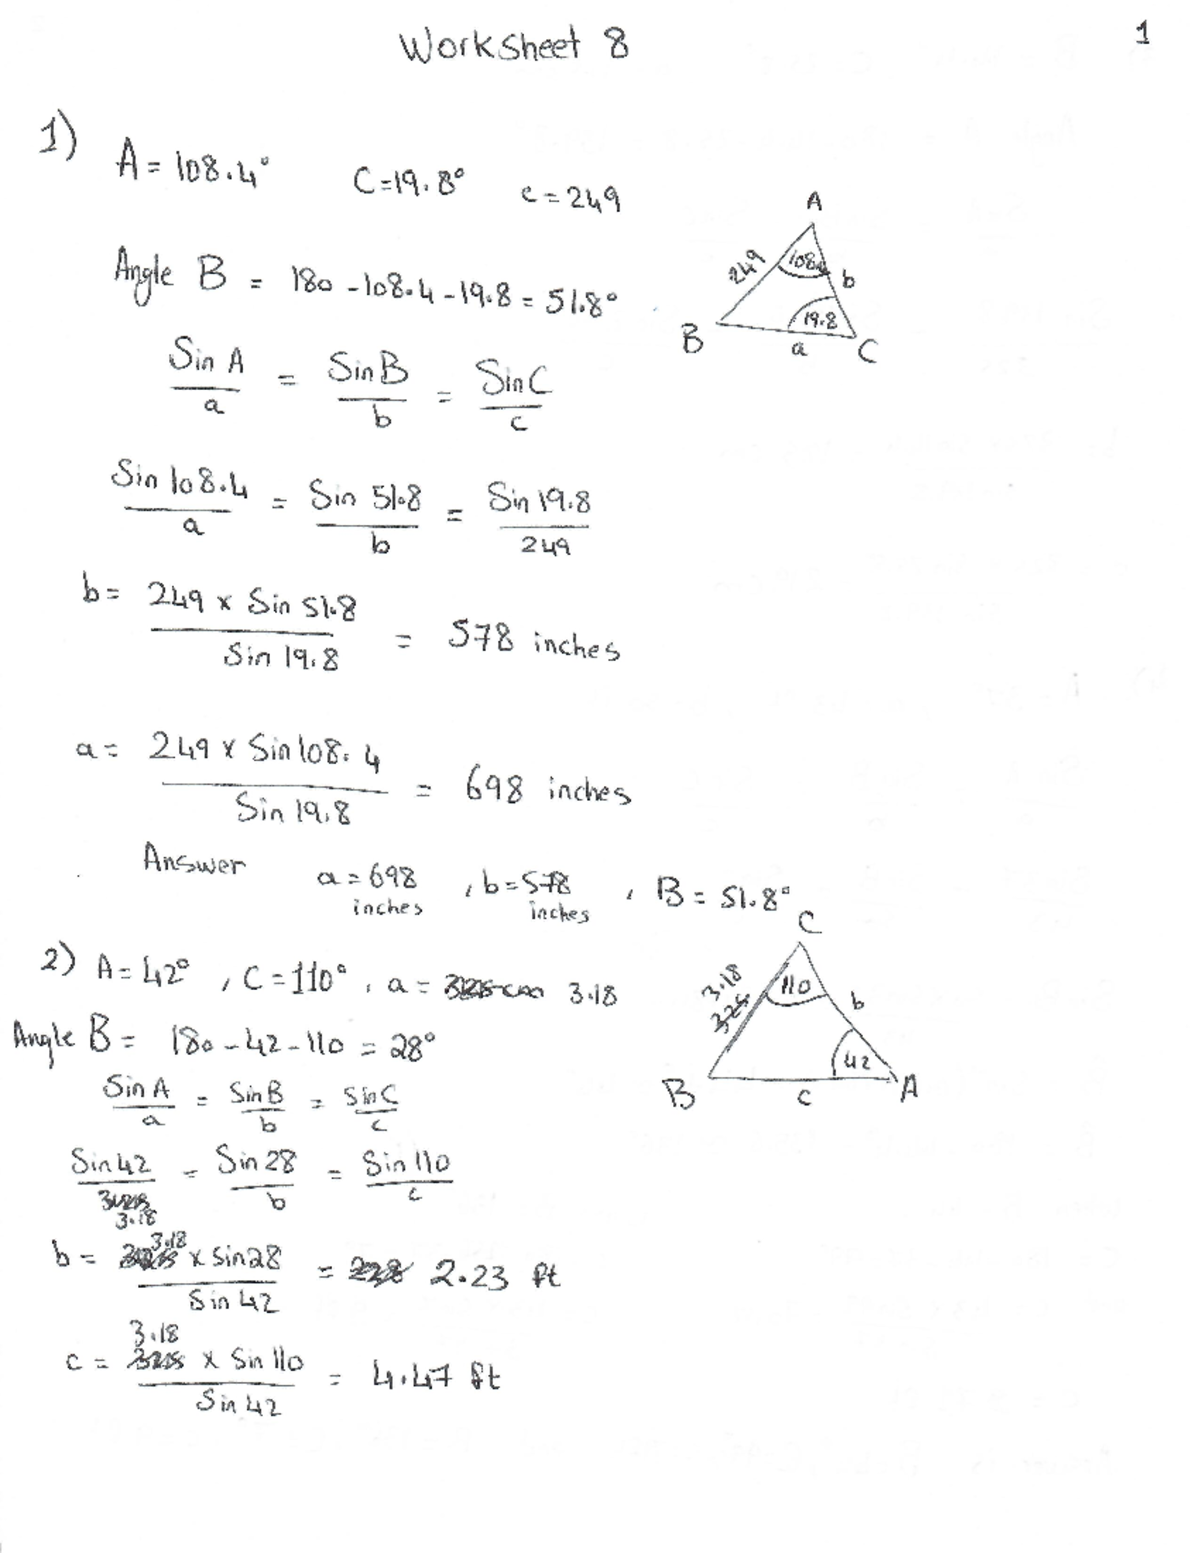 Worksheet 8
1
1)
A = 108.4° C = 19.8° c = 249
Angle B = 180 - 108.4 - 19.8 = 51.8°
A
249 108.4 b
19.8
B a C
Sin A / a = Sin B / b = Sin C / c
Sin 108.4 / a = Sin 51.8 / b = Sin 19.8 / 249
b = 249 x Sin 51.8 / Sin 19.8 = 578 inches
a = 249 x Sin 108.4 / Sin 19.8 = 698 inches
Answer a = 698 inches , b = 578 inches , B = 51.8°
2) A = 42° , C = 110° , a = 3.18
C
3.18 110 b
325
42
B c A
Angle B = 180 - 42 - 110 = 28°
Sin A / a = Sin B / b = Sin C / c
Sin 42 / 3.18 = Sin 28 / b = Sin 110 / c
b = 3.18 x Sin 28 / Sin 42 = 2.23 ft
c = 3.18 x Sin 110 / Sin 42 = 4.47 ft